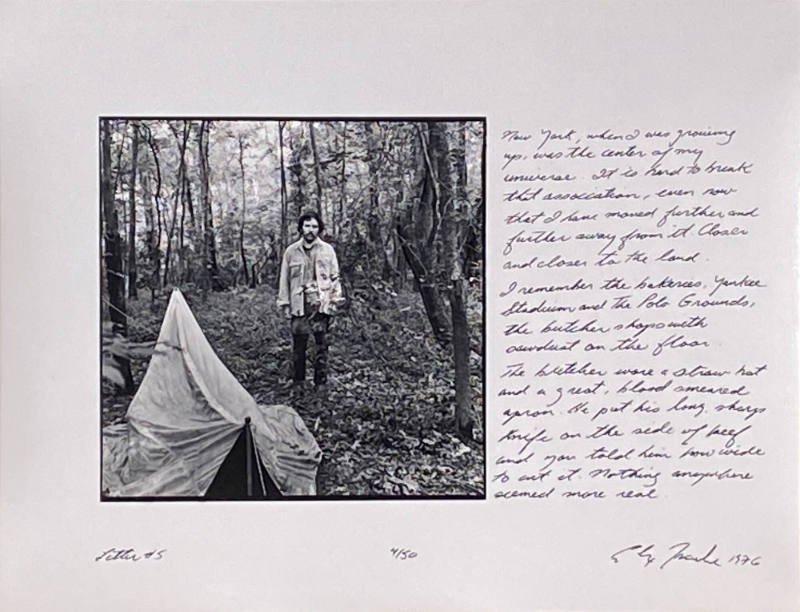 New York, when I was growing
up, was the center of my
universe. It is hard to break
that association, even now
that I have moved further and
further away from it closer
and closer to the land.
I remember the bakeries, Yankee
Stadium and The Polo Grounds,
the butcher shops with
sawdust on the floor.
The butcher wore a straw hat
and a great, blood smeared
apron. He put his long, sharp
knife on the side of beef
and you told him how wide
to cut it. Nothing anywhere
seemed more real.
Letter #5
4/50
1976